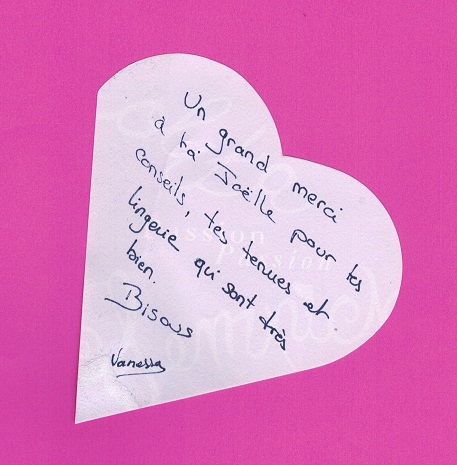 Un grand merci
à toi Joëlle pour tes
conseils, tes tenues et
lingerie qui sont très
bien.
Bisous
Vanessa
Passion
Passion